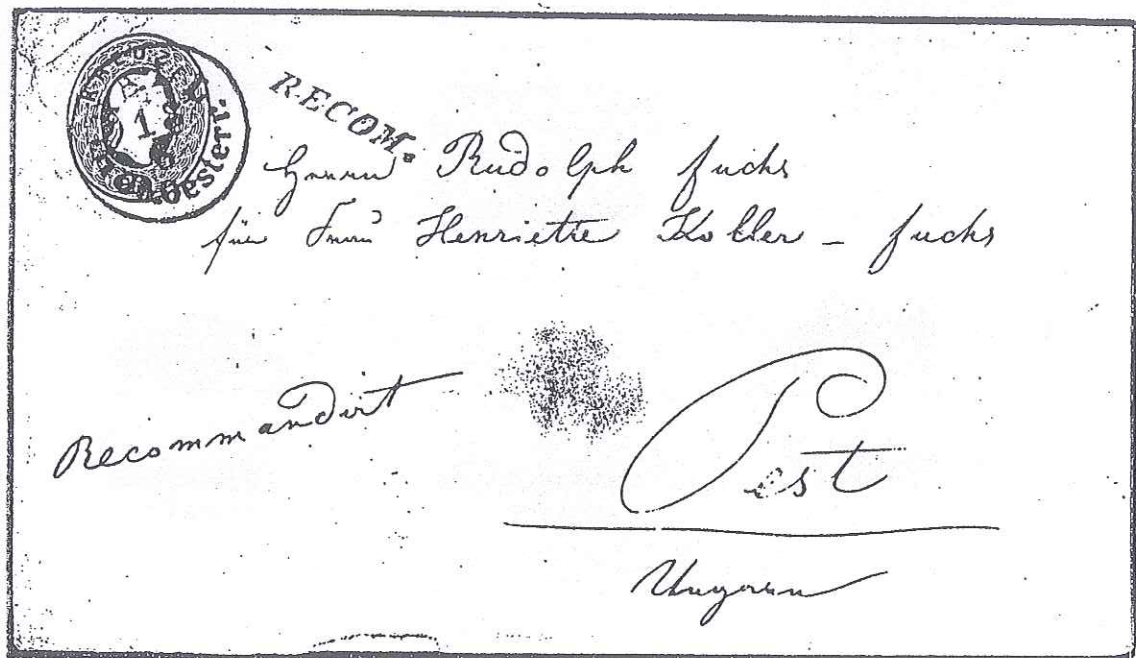 KREUZER
1
Oesterr.
RECOM.
Herrn Rudolph Fuchs
für Frau Henriette Koller - Fuchs
Recommandirt
Pest
Ungarn